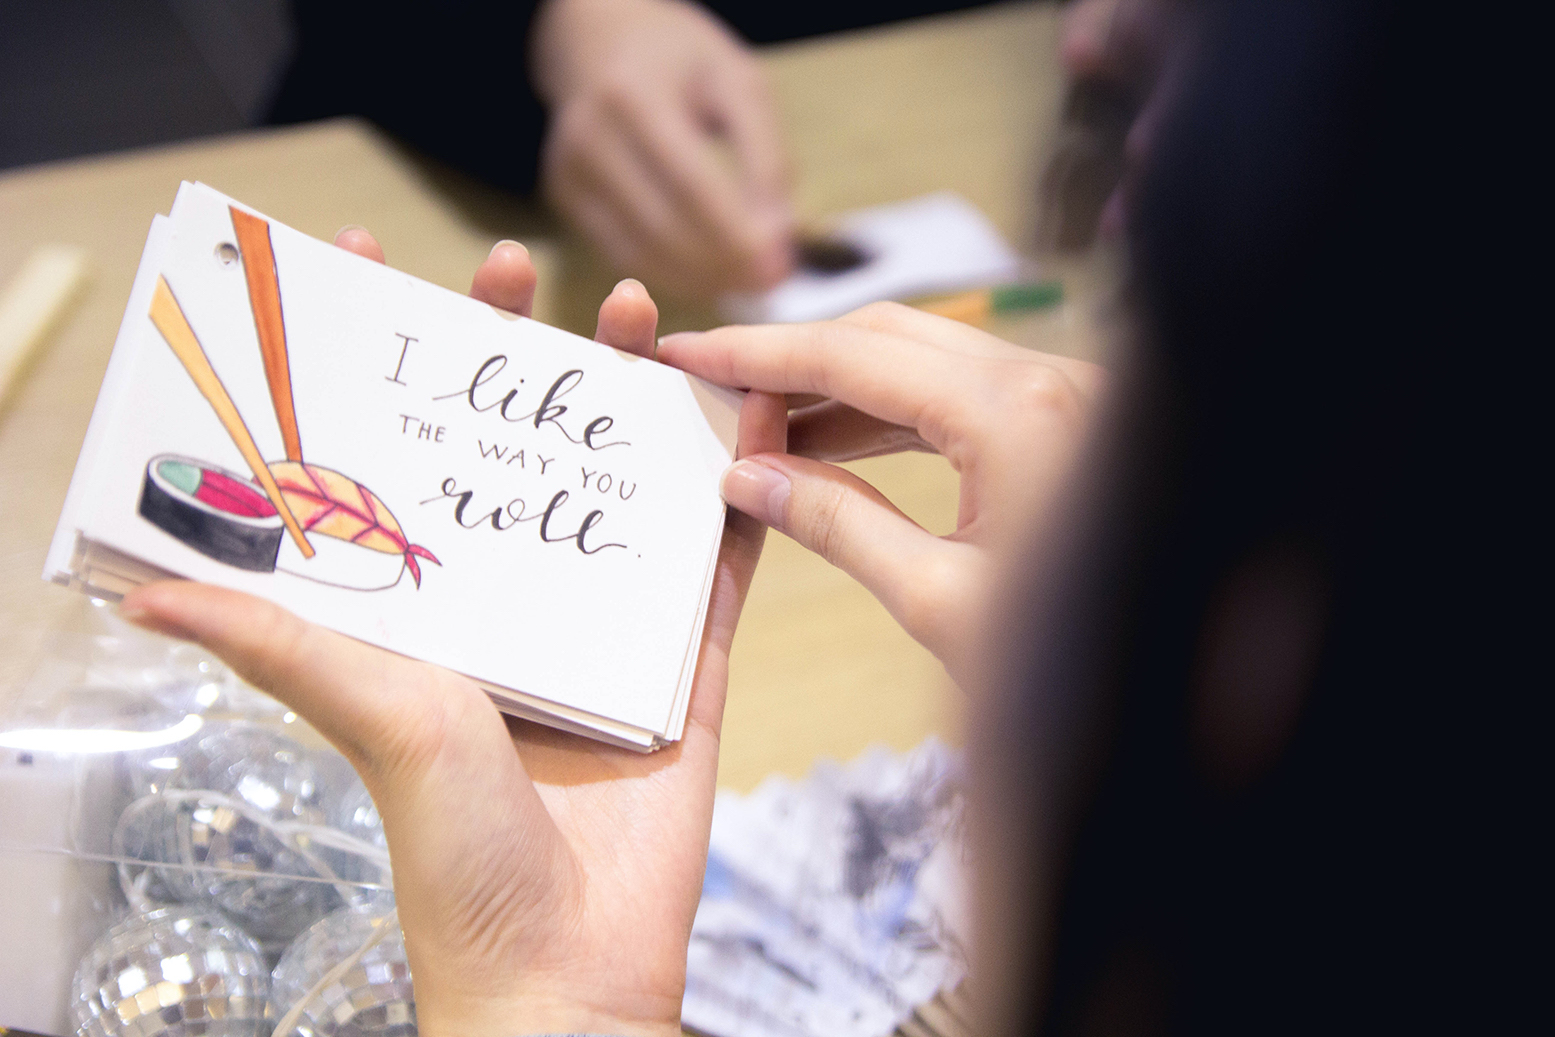 I like
THE WAY YOU
roll.